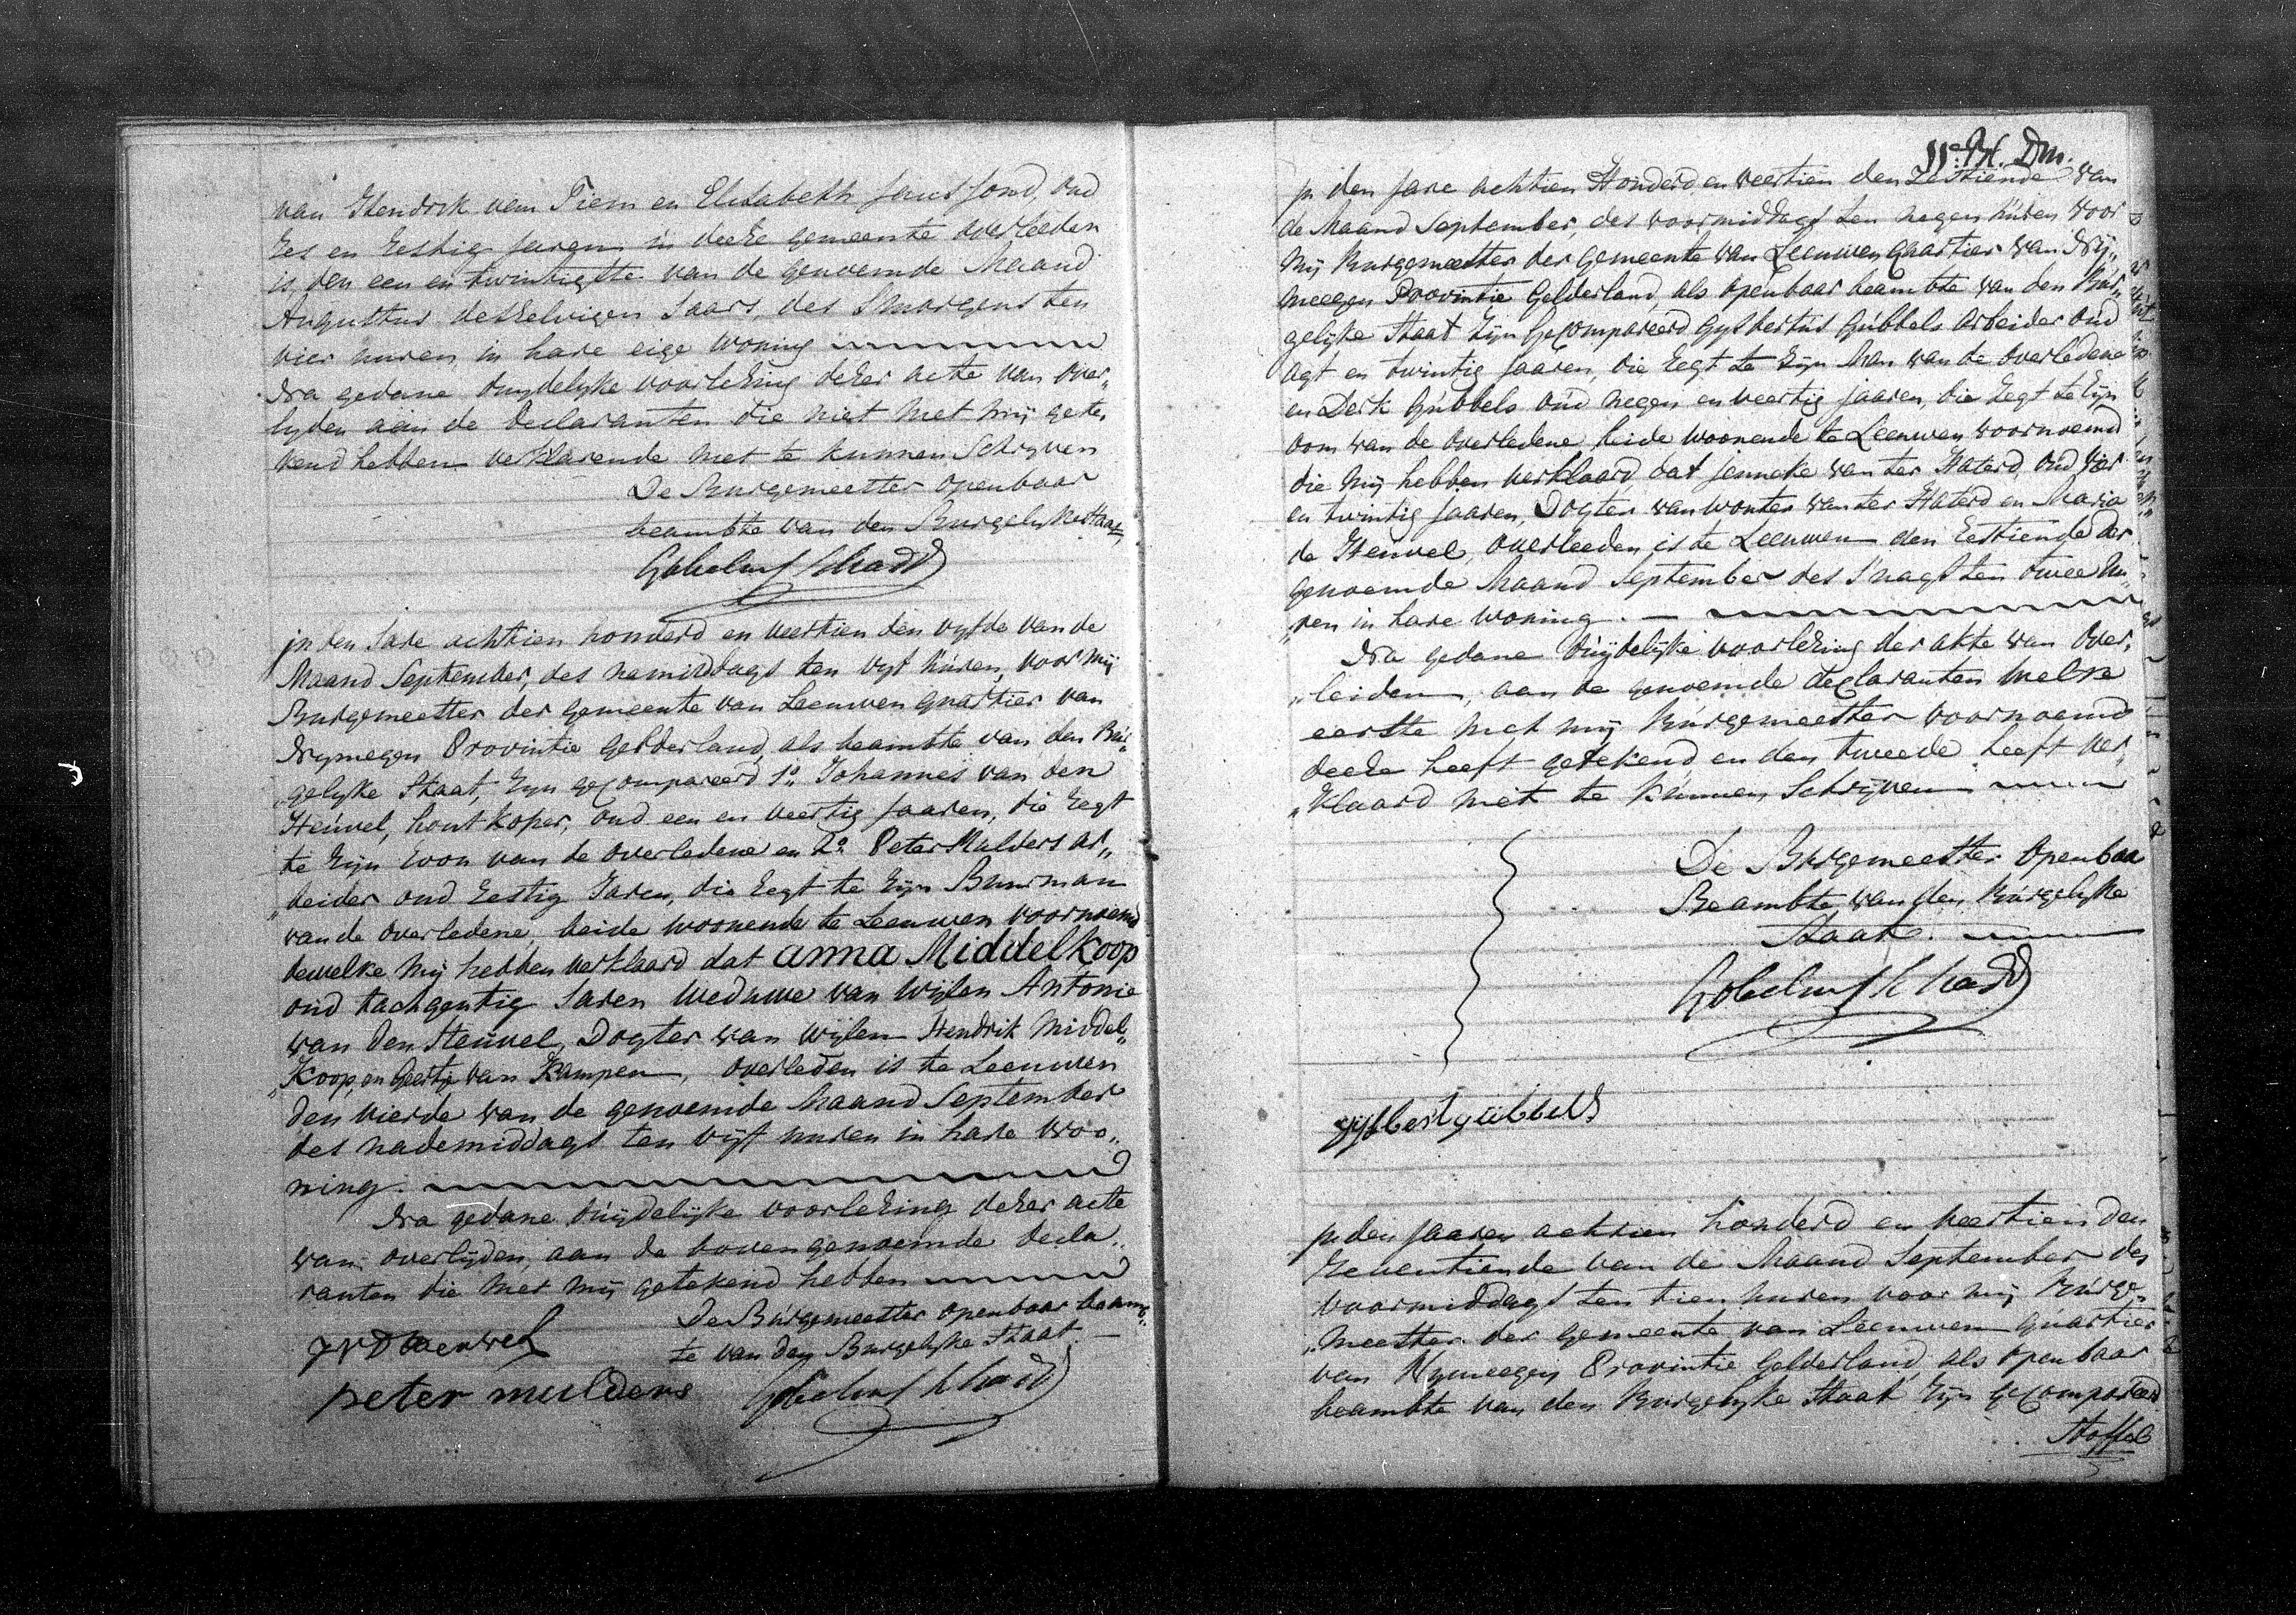 van Hendrik van Tiem en Elisabeth Jansfond, oud
zes en zestig Jaren in deeze gemeente overleeden
is, den een en twintigste van de genoemde Maand
Augustus deszelvigen Jaars, des Smorgens ten
vier uuren, in hare eige woning
Na gedane duydelyke voorlezing dezer acte van over„
lyden aan de declaranten die niet met mij gete„
kend hebben verklarende niet te kunnen Schryven
De Burgemeester openbaar
beambte van den Burgelyke Staat,
in den Jare achtien honderd en veertien den vyfde van de
Maand September, des namiddags ten vyf uuren, voor mij
Burgemeester der gemeente van Leeuwen quartier van
Nymegen Provintie Gelderland, als beambte van den Bur„
„gelyke Staat, zyn gecompareerd 1o Johannes van den
Heuvel, hout koper, oud een en veertig Jaaren, die zegt
te zyn zoon van de overledene en 2o Peter Mulders ar„
„beider oud zestig Jaren, die zegt te zyn Buurman
van de overledene, beide woonende te Leeuwen voornoemd
dewelke mij hebben verklaard dat anna Middelkoop
oud tachgentig Jaren Weduwe van wylen Antonie
van den Heuvel, Dogter van wijlen Hendrik Middel„
„Koop, en Geertje van Kampen, overleden is te Leeuwen
den vierde van de genoemde Maand September
des nademiddags ten vijf uuren in hare woo„
ning.
Na gedane duijdelijke voorlezing dezer acte
van overlijden, aan de bovengenoemde decla„
ranten die met mij getekend hebben
De Burgemeester openbaar beamb„
te van den Burgelyke Staat
JVDHeuvel
peter mulders
11e Bl. Dm.
in den Jare achtien Honderd en veertien den Zestiende van
de Maand September, des voormiddags ten negen uuren voor
Mij Burgemeester der gemeente van Leeuwen quartier van Nij„
meegen Provintie Gelderland, als openbaar beambte van den Bur„
gelijke Staat zijn gecompareerd Gysbertus Gubbels arbeider oud
agt en twintig Jaaren, die zegt te zijn Man van de overledene
en Derk Gubbels oud negen en veertig Jaaren, die zegt te zijn
oom van de overledene, beide woonende te Leeuwen voornoemd
die mij hebben verklaard dat Jenneke van ter Haterd, oud vier
en twintig Jaaren, Dogter van wouter van ter Haterd en Maria
de Heuvel, overleeden is te Leeuwen den zestiende der
genoemde Maand September des Snagts ten twee Uu„
„ren in hare woning.
Na gedane duijdelijke voorlezing der akte van over„
„leiden, aan de genoemde declaranten welke
eerste met mij Burgemeester voornoemd
deeze heeft getekend en den tweede heeft ver„
„klaard niet te kunnen Schrijven
De Burgemeester openbaar
Beambte van den Burgelyke
Staat.
gysbert gubbels
in den Jaaren achtien honderd en veertien den
Zeventiende van de Maand September des
voormiddags ten tien uuren voor mij Burge„
„meester der gemeente van Leeuwen quartier
van Nymeegen Provintie Gelderland, als openbaar
beambte van den Burgelyke Staat zyn gecompareerd
Stoffel